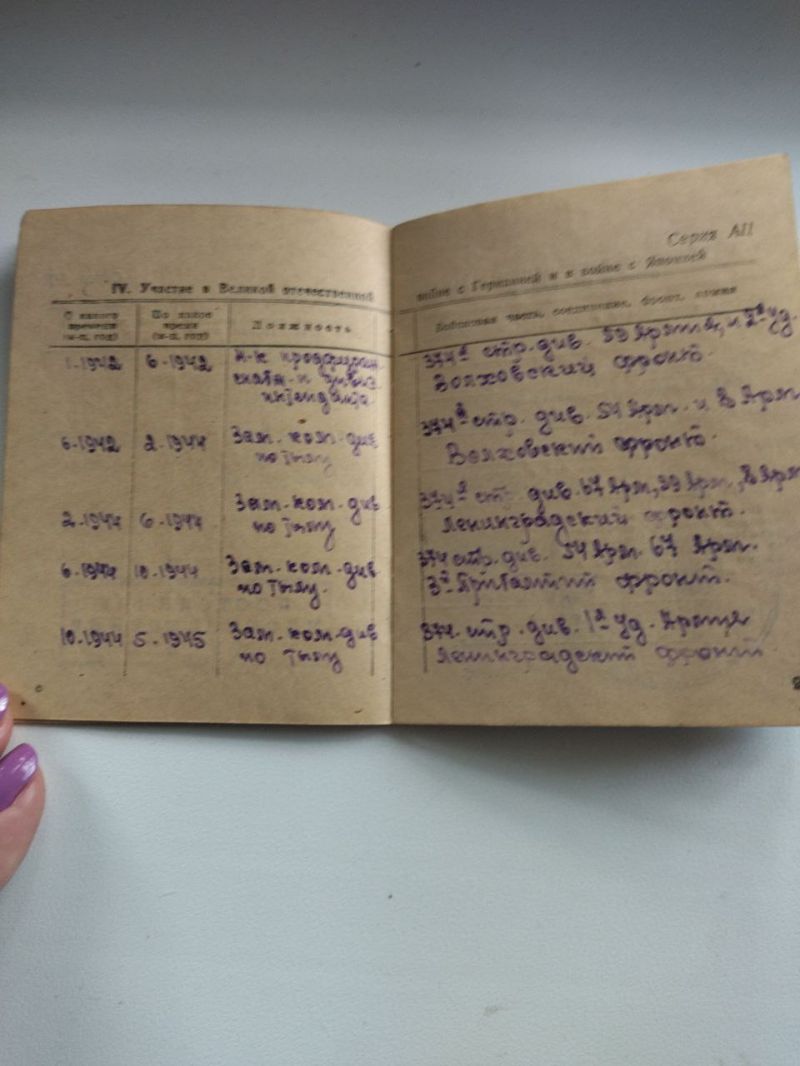 Серия АП
IV. Участие в Великой отечественной
войне с Германией и в войне с Японией
С какого времени (м-ц, год)
По какое время (м-ц, год)
Должность
Войсковая часть, соединение, фронт, армия
1.1942 6.1942 Н-к
интенданта
374й стр. див. 59 Армия, и 2я уд.
Волховский фронт.
6.1942 2.1944 Зам. ком. див
по тылу
374й стр. див. 54 Арм. и 8 Арм
Волховский фронт.
2.1944 6.1944 Зам. ком. див
по тылу
374й стр. див. 67 Арм, 59 Арм, 8 Арм
Ленинградский фронт.
6.1944 10.1944 Зам. ком. див
по тылу.
374 стр. див. 54 Арм. 67 Арм.
3й Прибалтий фронт.
10.1944 5.1945 Зам. ком. див
по тылу
374. стр. див. 1я уд. Армия
Ленинградский фронт